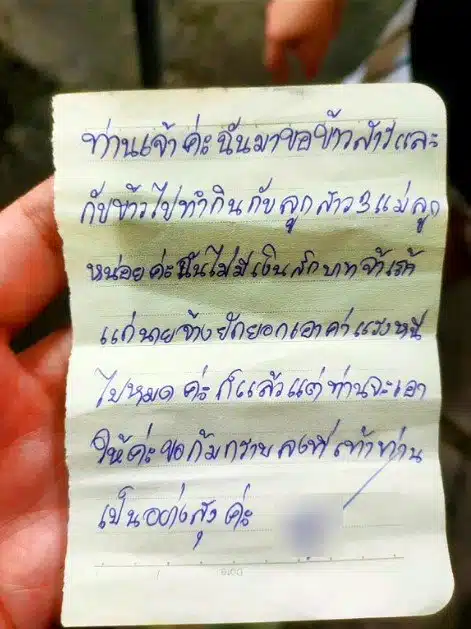 ท่านเจ้า ค่ะ ฉันมาขอข้าวสารและ
กับข้าวไปทำกินกับลูกสาว 3 แม่ลูก
หน่อยค่ะฉันไม่มีเงินสักบาท
แต่นายจ้างยักยอกเอาค่าแรงหนี
ไปหมด ค่ะ ก็แล้วแต่ท่านจะเอา
ให้ค่ะ ขอก้มกราบลงที่เท้าท่าน
เป็นอย่างสุง ค่ะ
Date